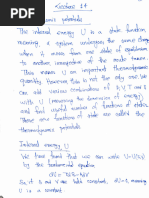 Lecture 14
Thermodynamic potentials
The internal energy U is a state function
meaning a system undergoes the same change
when it moves from one state of equilibrium
to another irrespective of the route taken.
This makes U an important thermodynamic
quantity, however this is not the only one. We
can add various combinations of P, V, T and S
with U (meaning same dimensions) and
find useful number of functions of state.
These are called the
thermodynamic potentials.
Internal energy
We have found that we can write U=U(S,V)
by the fundamental equation
dU = TdS-PdV.
So if S and V are both constant, dU=0, meaning
U is a constant.